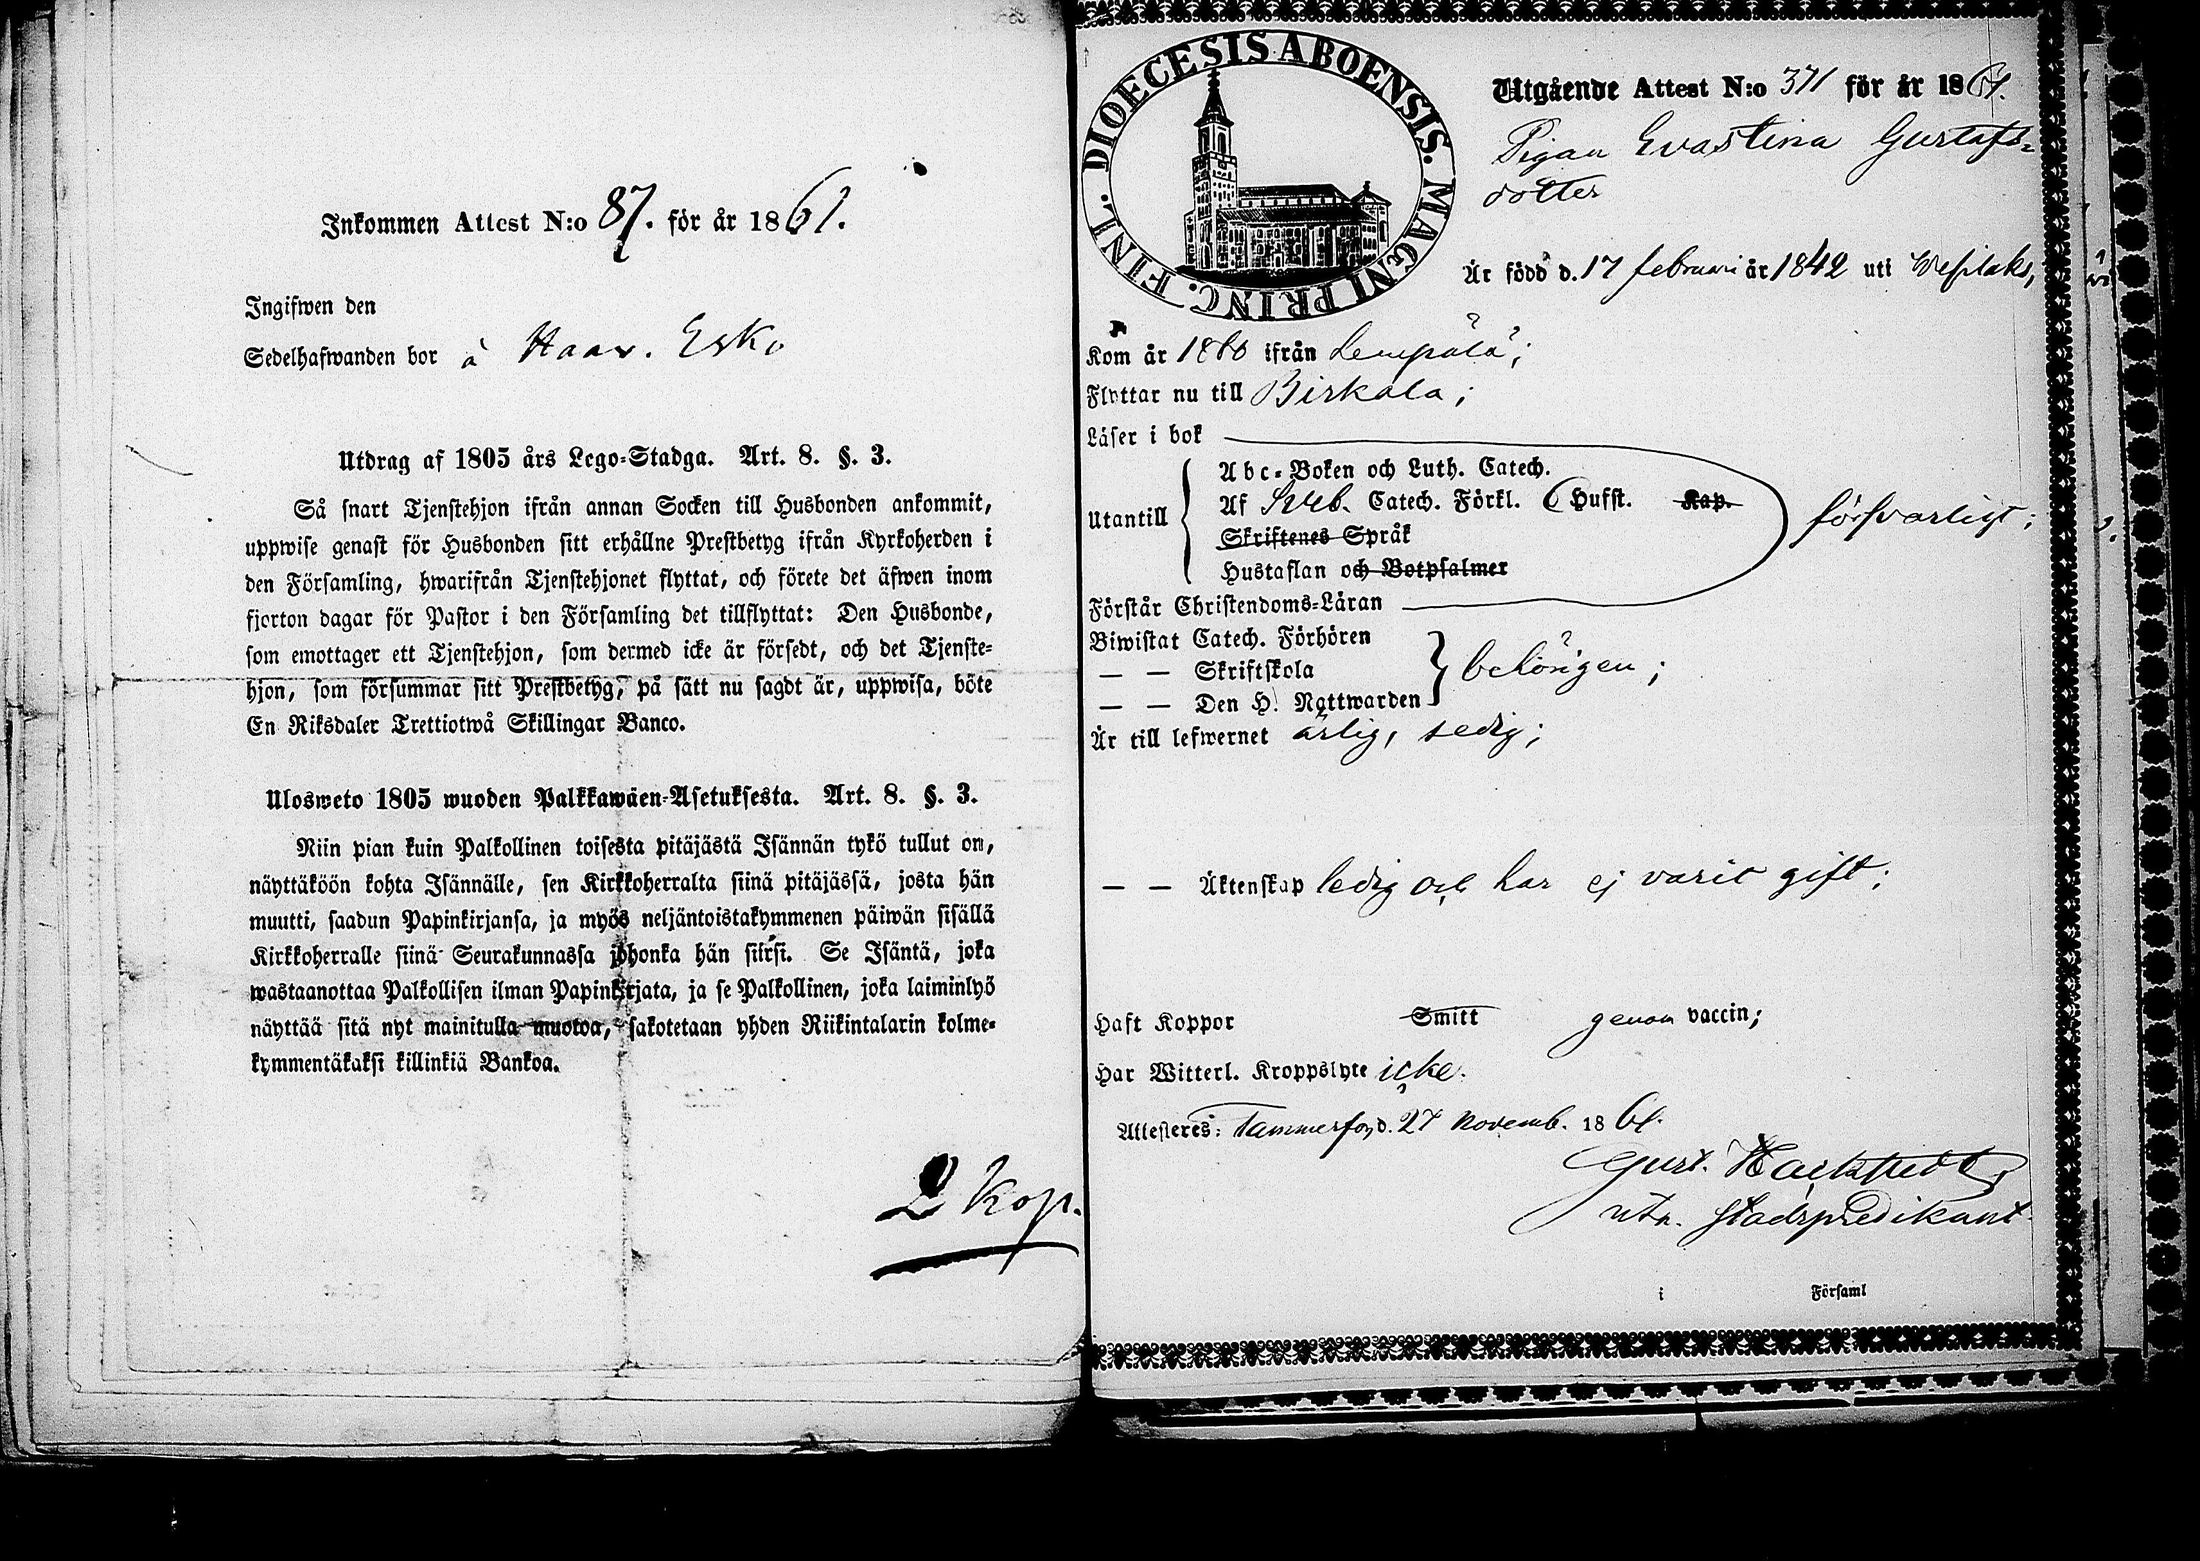 Inkommen Attest N:o 87. för år 1861.
Ingifwen den
Sedelhafwanden bor å Haav. Esko
Utdrag af 1805 års Lego-Stadga. Art. 8. §. 3.
Så snart Tjenstehjon ifrån annan Socken till Husbonden ankommit,
uppwise genast för Husbonden sitt erhållne Prestbetyg ifrån Kyrkoherden i
den Församling, hwarifrån Tjenstehjonet flyttat, och förete det äfwen inom
fjorton dagar för Pastor i den Församling det tillflyttat: Den Husbonde,
som emottager ett Tjenstehjon, som dermed icke är försedt, och det Tjenste-
hjon, som försummar sitt Prestbetyg, på sätt nu sagdt är, uppwisa, böte
En Riksdaler Trettiotwå Skillingar Banco.
Ulosweto 1805 wuoden Palkkawäen-Asetuksesta. Art. 8. §. 3.
Niin pian kuin Palkollinen toisesta pitäjästä Isännän tykö tullut on,
näyttäköön kohta Isännälle, sen Kirkkoherralta siinä pitäjässä, josta hän
muutti, saadun Papinkirjansa, ja myös neljäntoistakymmenen päiwän sisällä
Kirkkoherralle siinä Seurakunnassa johonka hän siirsi. Se Isäntä, joka
wastaanottaa Palkollisen ilman Papinkirjata, ja se Palkollinen, joka laiminlyö
näyttää sitä nyt mainitulla muotoa, sakotetaan yhden Riikintalarin kolme-
kymmentäkaksi killinkiä Bankoa.
2 Kop.
DIOECESIS ABOENSIS. MAGNI PRINC. FINL.
Utgående Attest N:o 371 för år 1861.
Pigan Evastina Gustafs-
dotter
Är född d. 17 februari år 1842 uti Wesilaks,
Kom år 1860 ifrån Lempälä;
Flyttar nu till Birkala;
Läser i bok
Abc-Boken och Luth. Catech.
Utantill Af Sveb. Catech. Förkl. Husst. Kap. försvarligt;
Skriftenes Språk
Hustaflan och Botpsalmer
Förstår Christendoms-Läran
Biwistat Catech. Förhören
— — Skriftskola behörigen;
— — Den H. Nattwarden
Är till lefwernet ärlig, sedig;
— — Äktenskap ledig och har ej varit gift;
Haft Koppor Smitt genom vaccin;
Har Witterl. Kroppslyte icke.
Attesteres: Tammerfors d. 27 Novemb. 1861.
Gust.
stadspredikant
i Församl